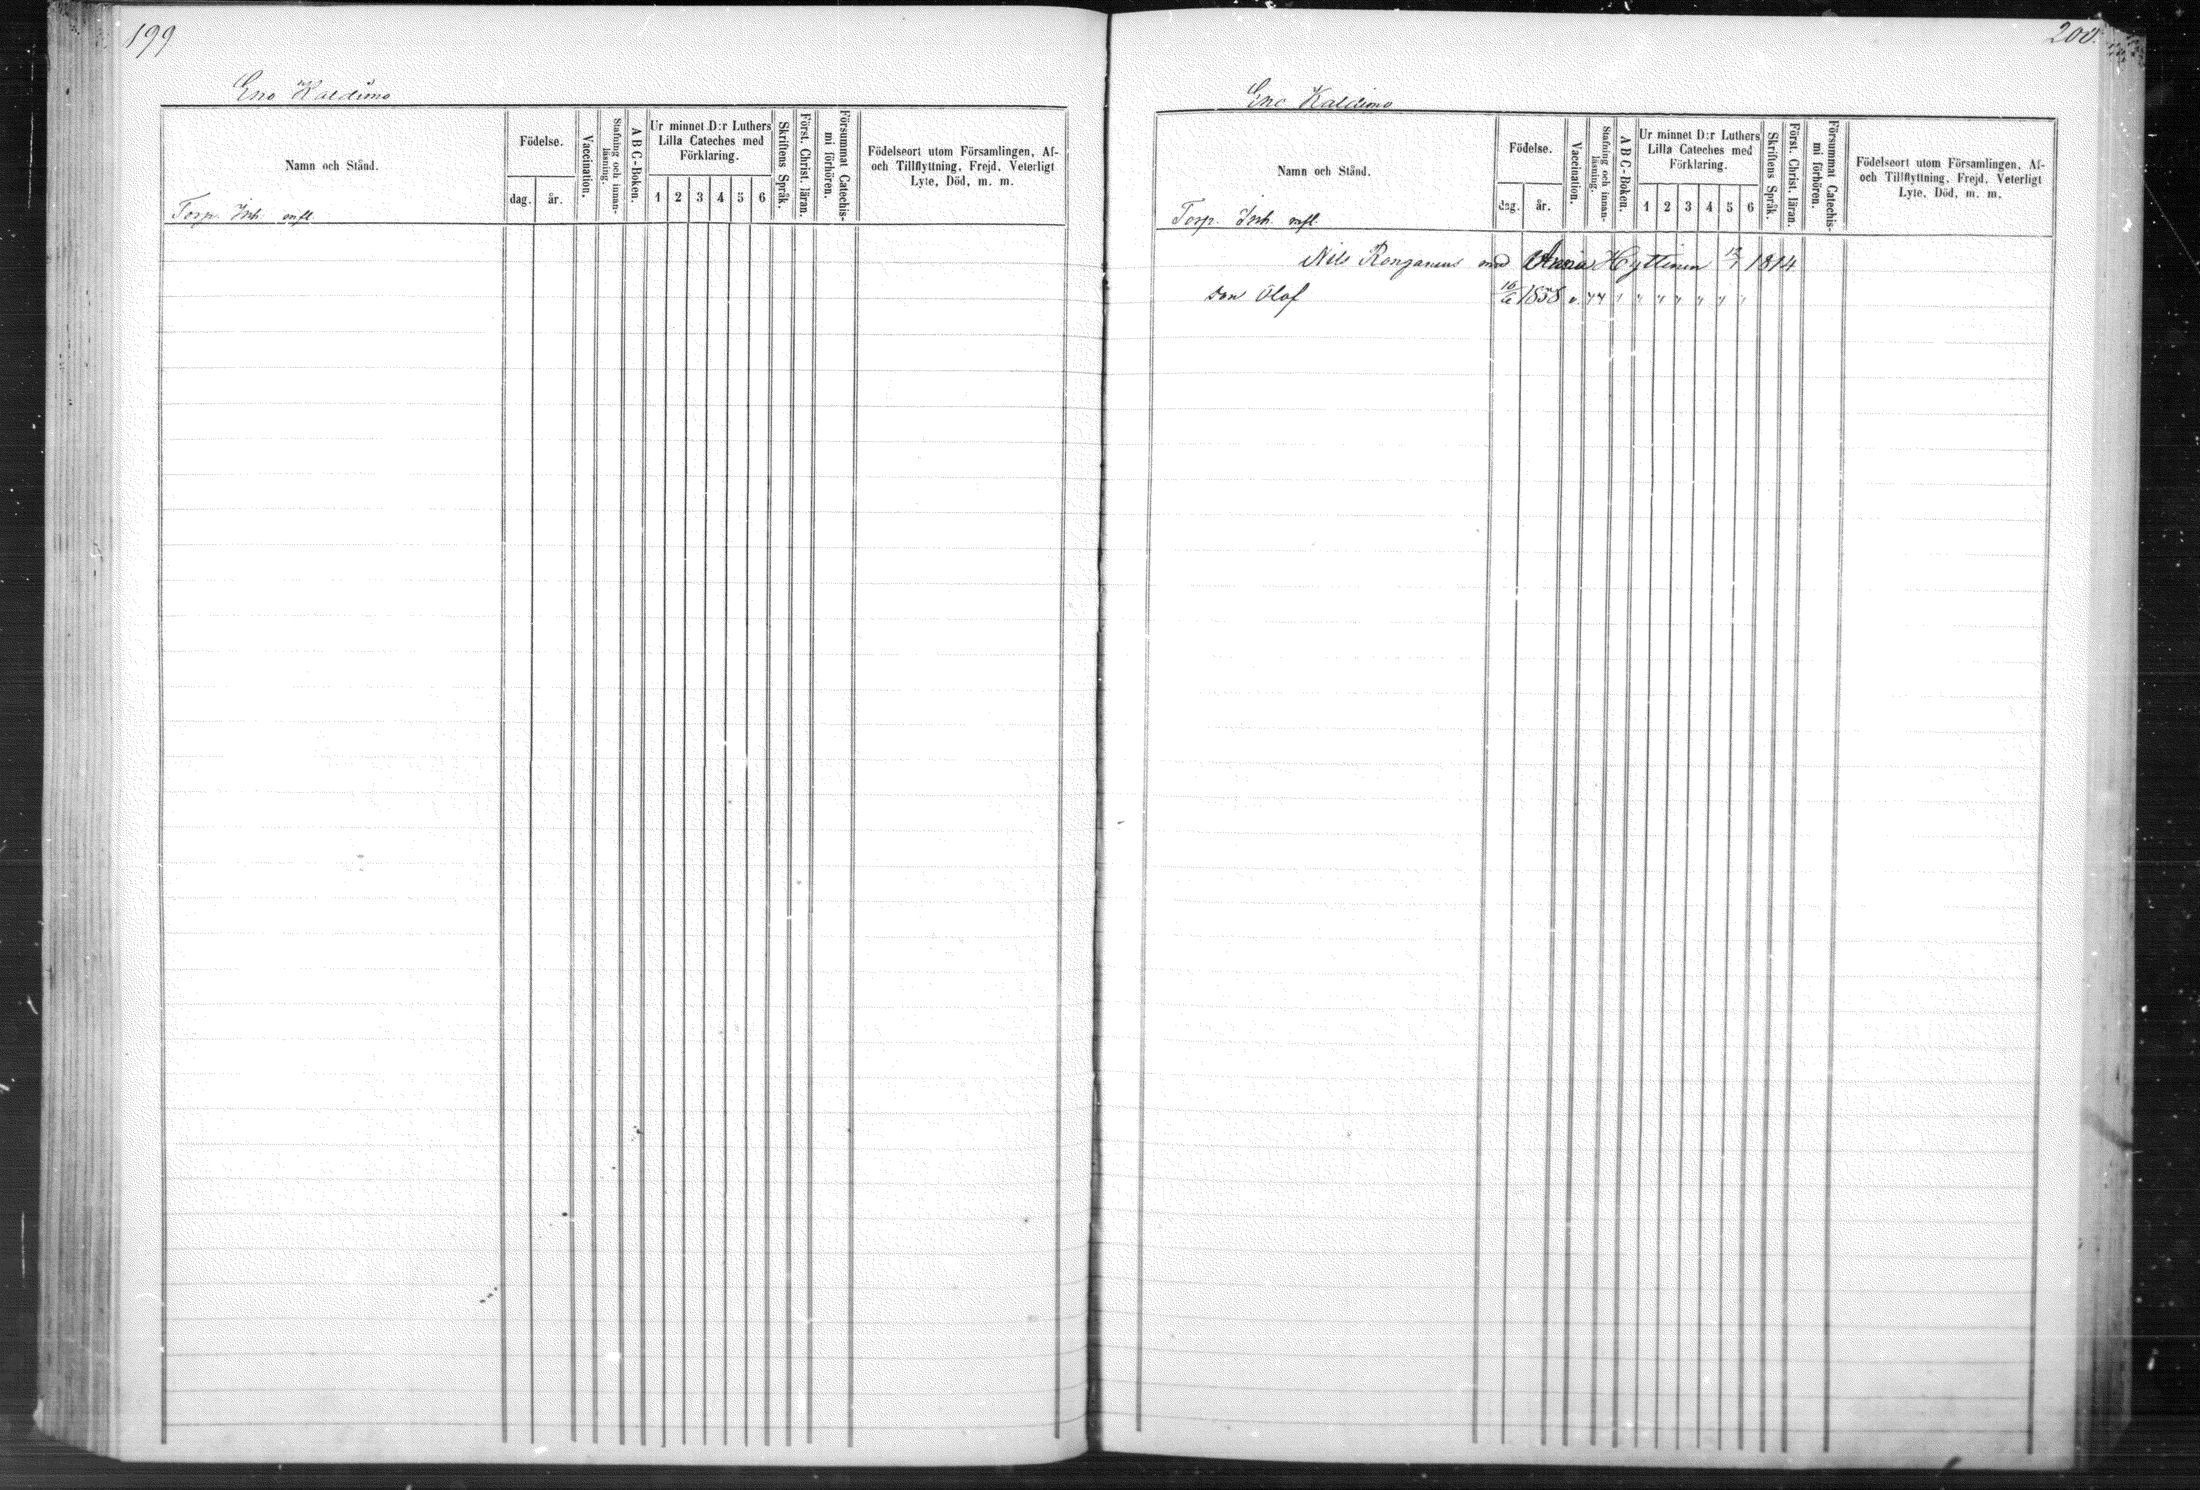 199
Eno Kaldimo
Namn och Stånd.
Födelse.
dag.
år.
Vaccination.
Stafning och innan-
läsning.
A B C-Boken.
Ur minnet D:r Luthers
Lilla Cateches med
Förklaring.
1 2 3 4 5 6
Skriftens Språk.
Först. Christ. läran.
Försummat Catechis-
mi förhören.
Födelseort utom Församlingen, Af-
och Tillflyttning, Frejd, Veterligt
Lyte, Död, m. m.
Torp. Inh. mfl.
200.
Eno Kaldimo
Namn och Stånd.
Födelse.
dag.
år.
Vaccination.
Stafning och innan-
läsning.
A B C-Boken.
Ur minnet D:r Luthers
Lilla Cateches med
Förklaring.
1 2 3 4 5 6
Skriftens Språk.
Först. Christ. läran.
Försummat Catechis-
mi förhören.
Födelseort utom Församlingen, Af-
och Tillflyttning, Frejd, Veterligt
Lyte, Död, m. m.
Torp. Inh. mfl.
Nils Ronganens Anna Hyttinen 1814
son Olof 16/6 1858 v.